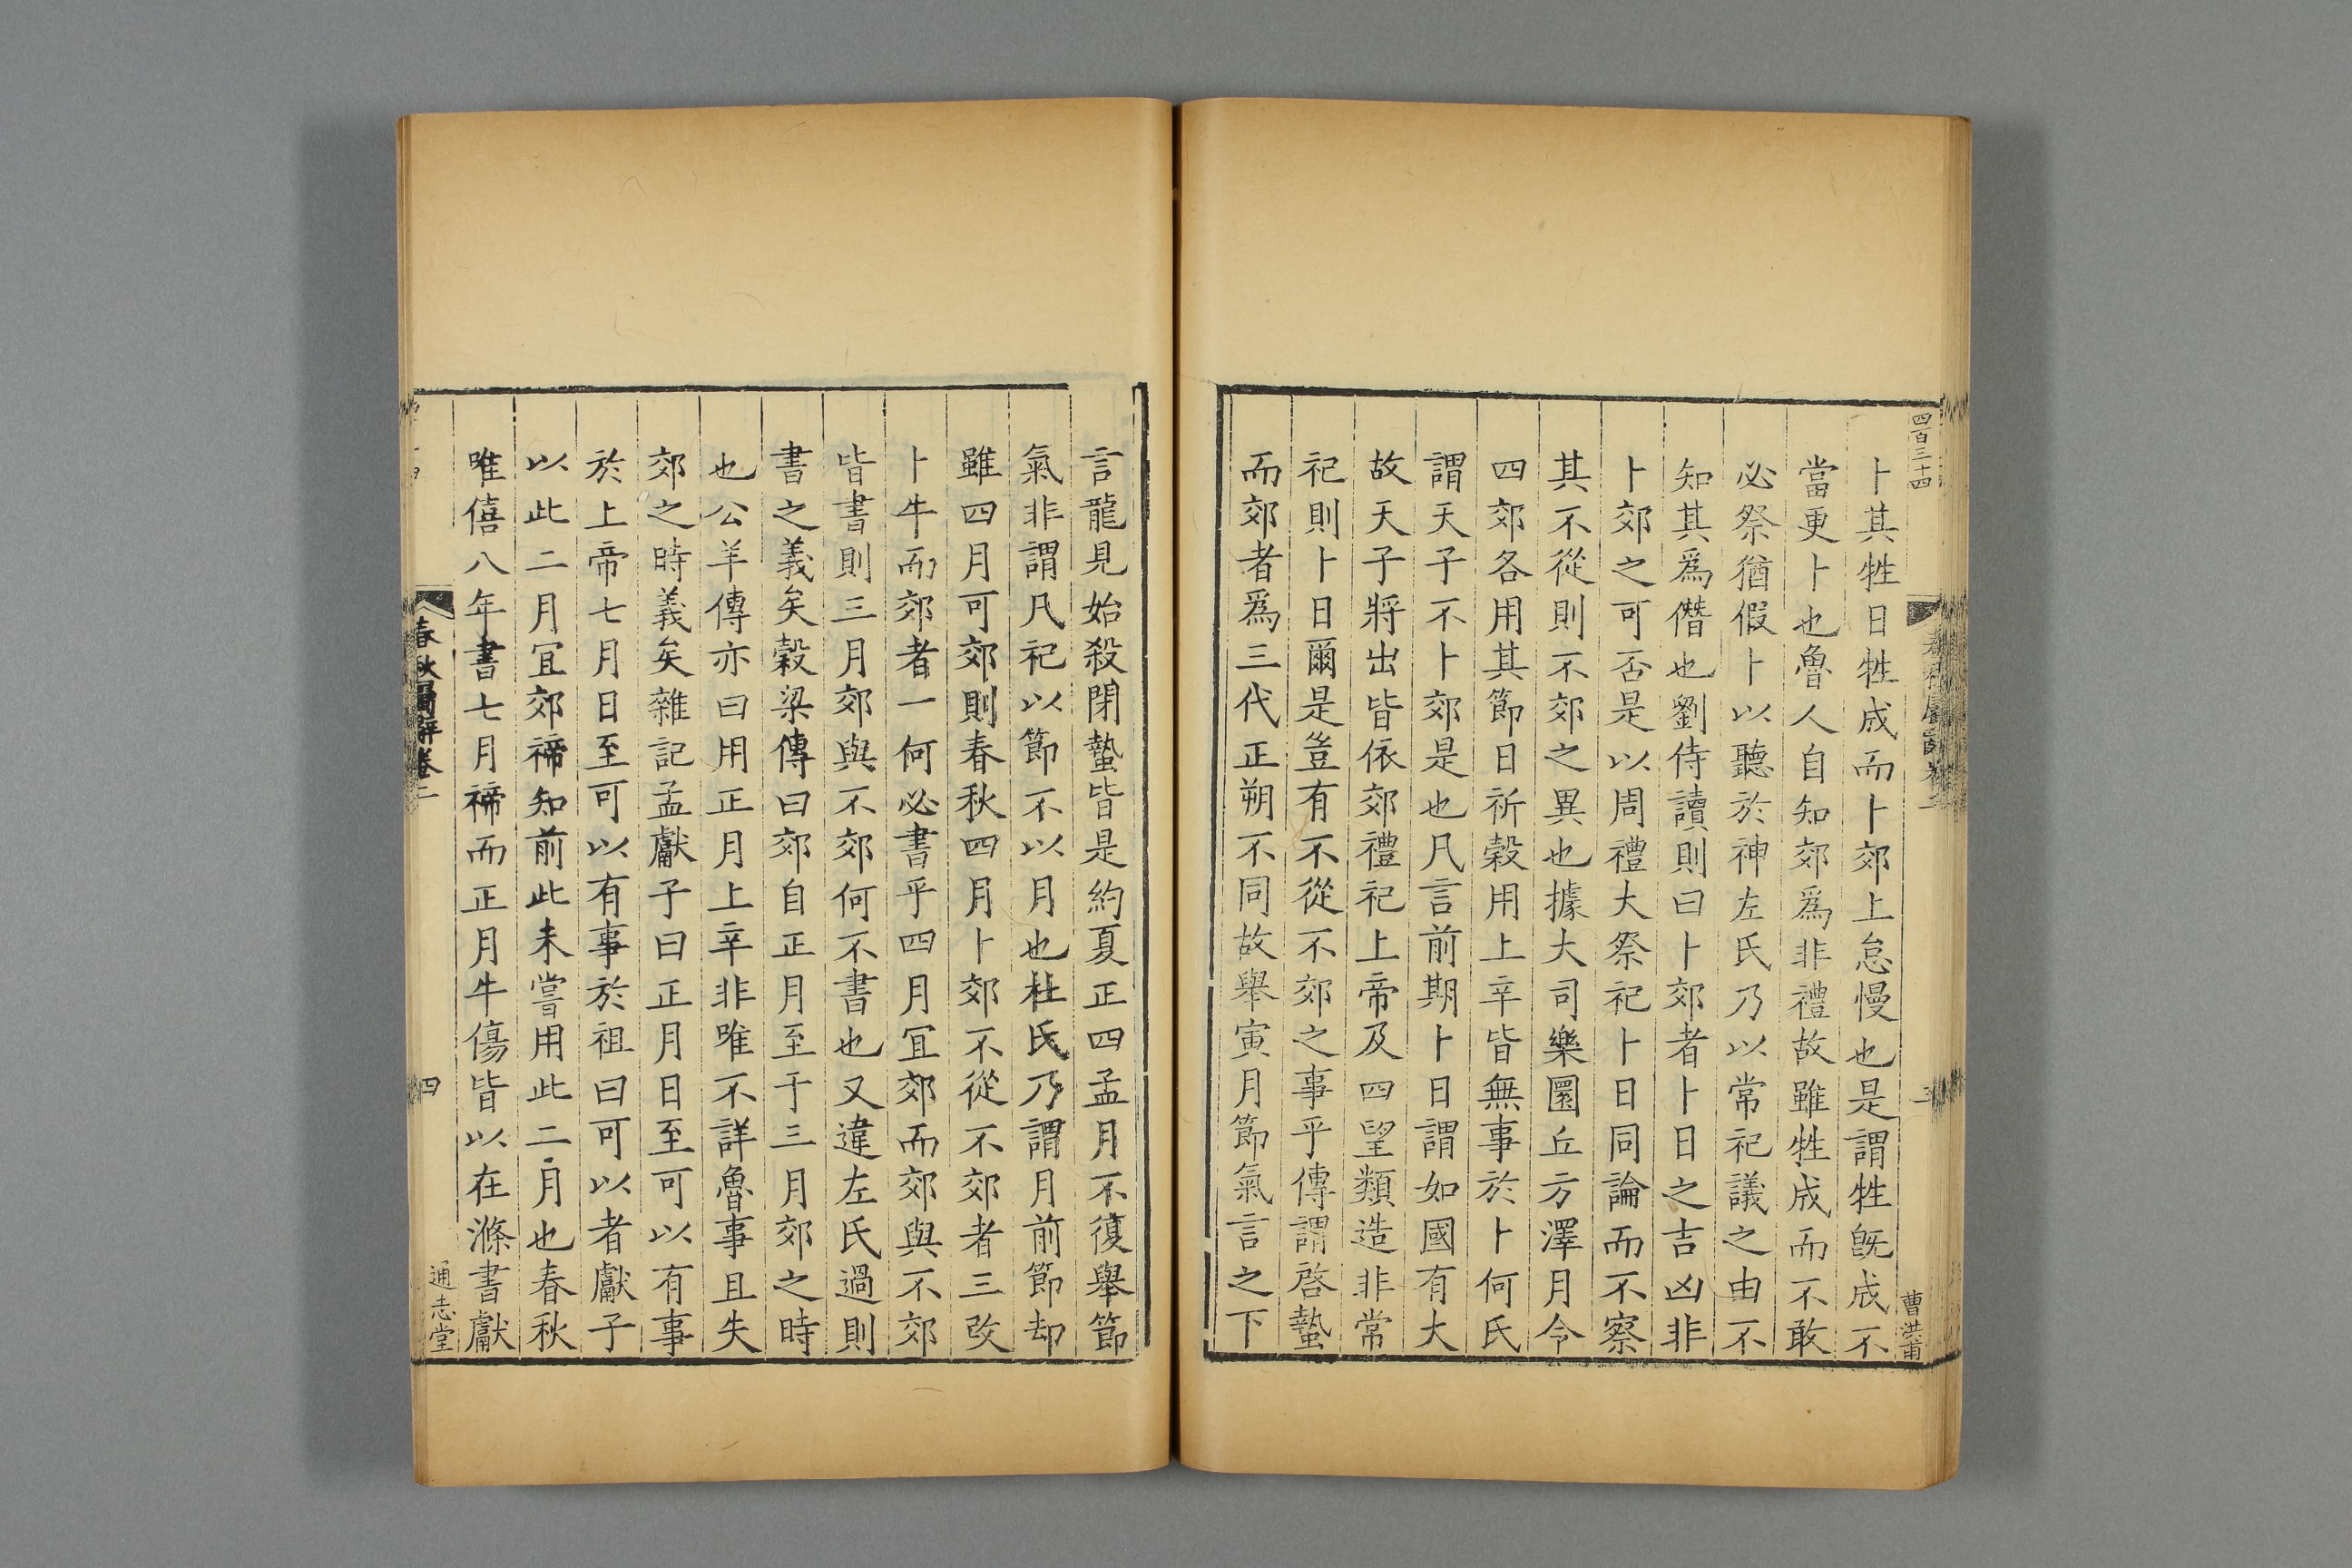 四百三十四
卜其牲日牲成而卜郊上怠慢也是謂牲旣成不
當更卜也魯人自知郊爲非禮故雖牲成而不敢
必祭猶假卜以聽於神左氏乃以常祀議之由不
知其爲僭也劉侍讀則曰卜郊者卜日之吉凶非
卜郊之可否是以周禮大祭祀卜日同論而不察
其不從則不郊之異也據大司樂圜丘方澤月令
四郊各用其節日祈穀用上辛皆無事於卜何氏
謂天子不卜郊是也凡言前期卜日謂如國有大
故天子將出皆依郊禮祀上帝及四望類造非常
祀則卜日爾是豈有不從不郊之事乎傳謂啓蟄
而郊者爲三代正朔不同故舉寅月節氣言之下
曹洪甫
言龍見始殺閉蟄皆是約夏正四孟月不復舉節
氣非謂凡祀以節不以月也杜氏乃謂月前節却
雖四月可郊則春秋四月卜郊不從不郊者三改
卜牛而郊者一何必書乎四月宜郊而郊與不郊
皆書則三月郊與不郊何不書也又違左氏過則
書之義矣穀梁傳曰郊自正月至于三月郊之時
也公羊傳亦曰用正月上辛非唯不詳魯事且失
郊之時義矣雜記孟獻子曰正月日至可以有事
於上帝七月日至可以有事於祖曰可以者獻子
以此二月宜郊禘知前此未嘗用此二月也春秋
唯僖八年書七月禘而正月牛傷皆以在滌書獻
春秋屬辭卷二
四
通志堂